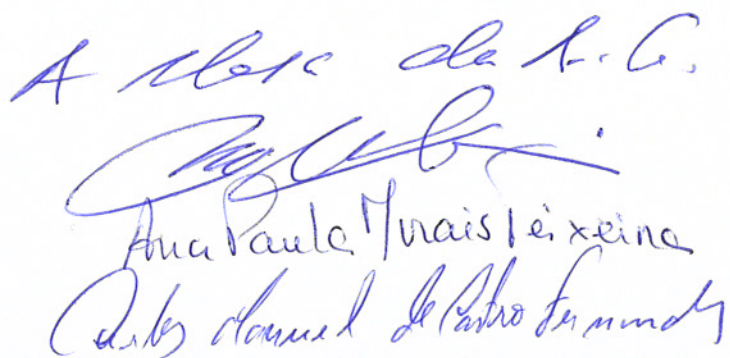 A Mesa da A. G.
Ana Paula Morais Teixeira
Carlos Manuel de Castro Fernandes